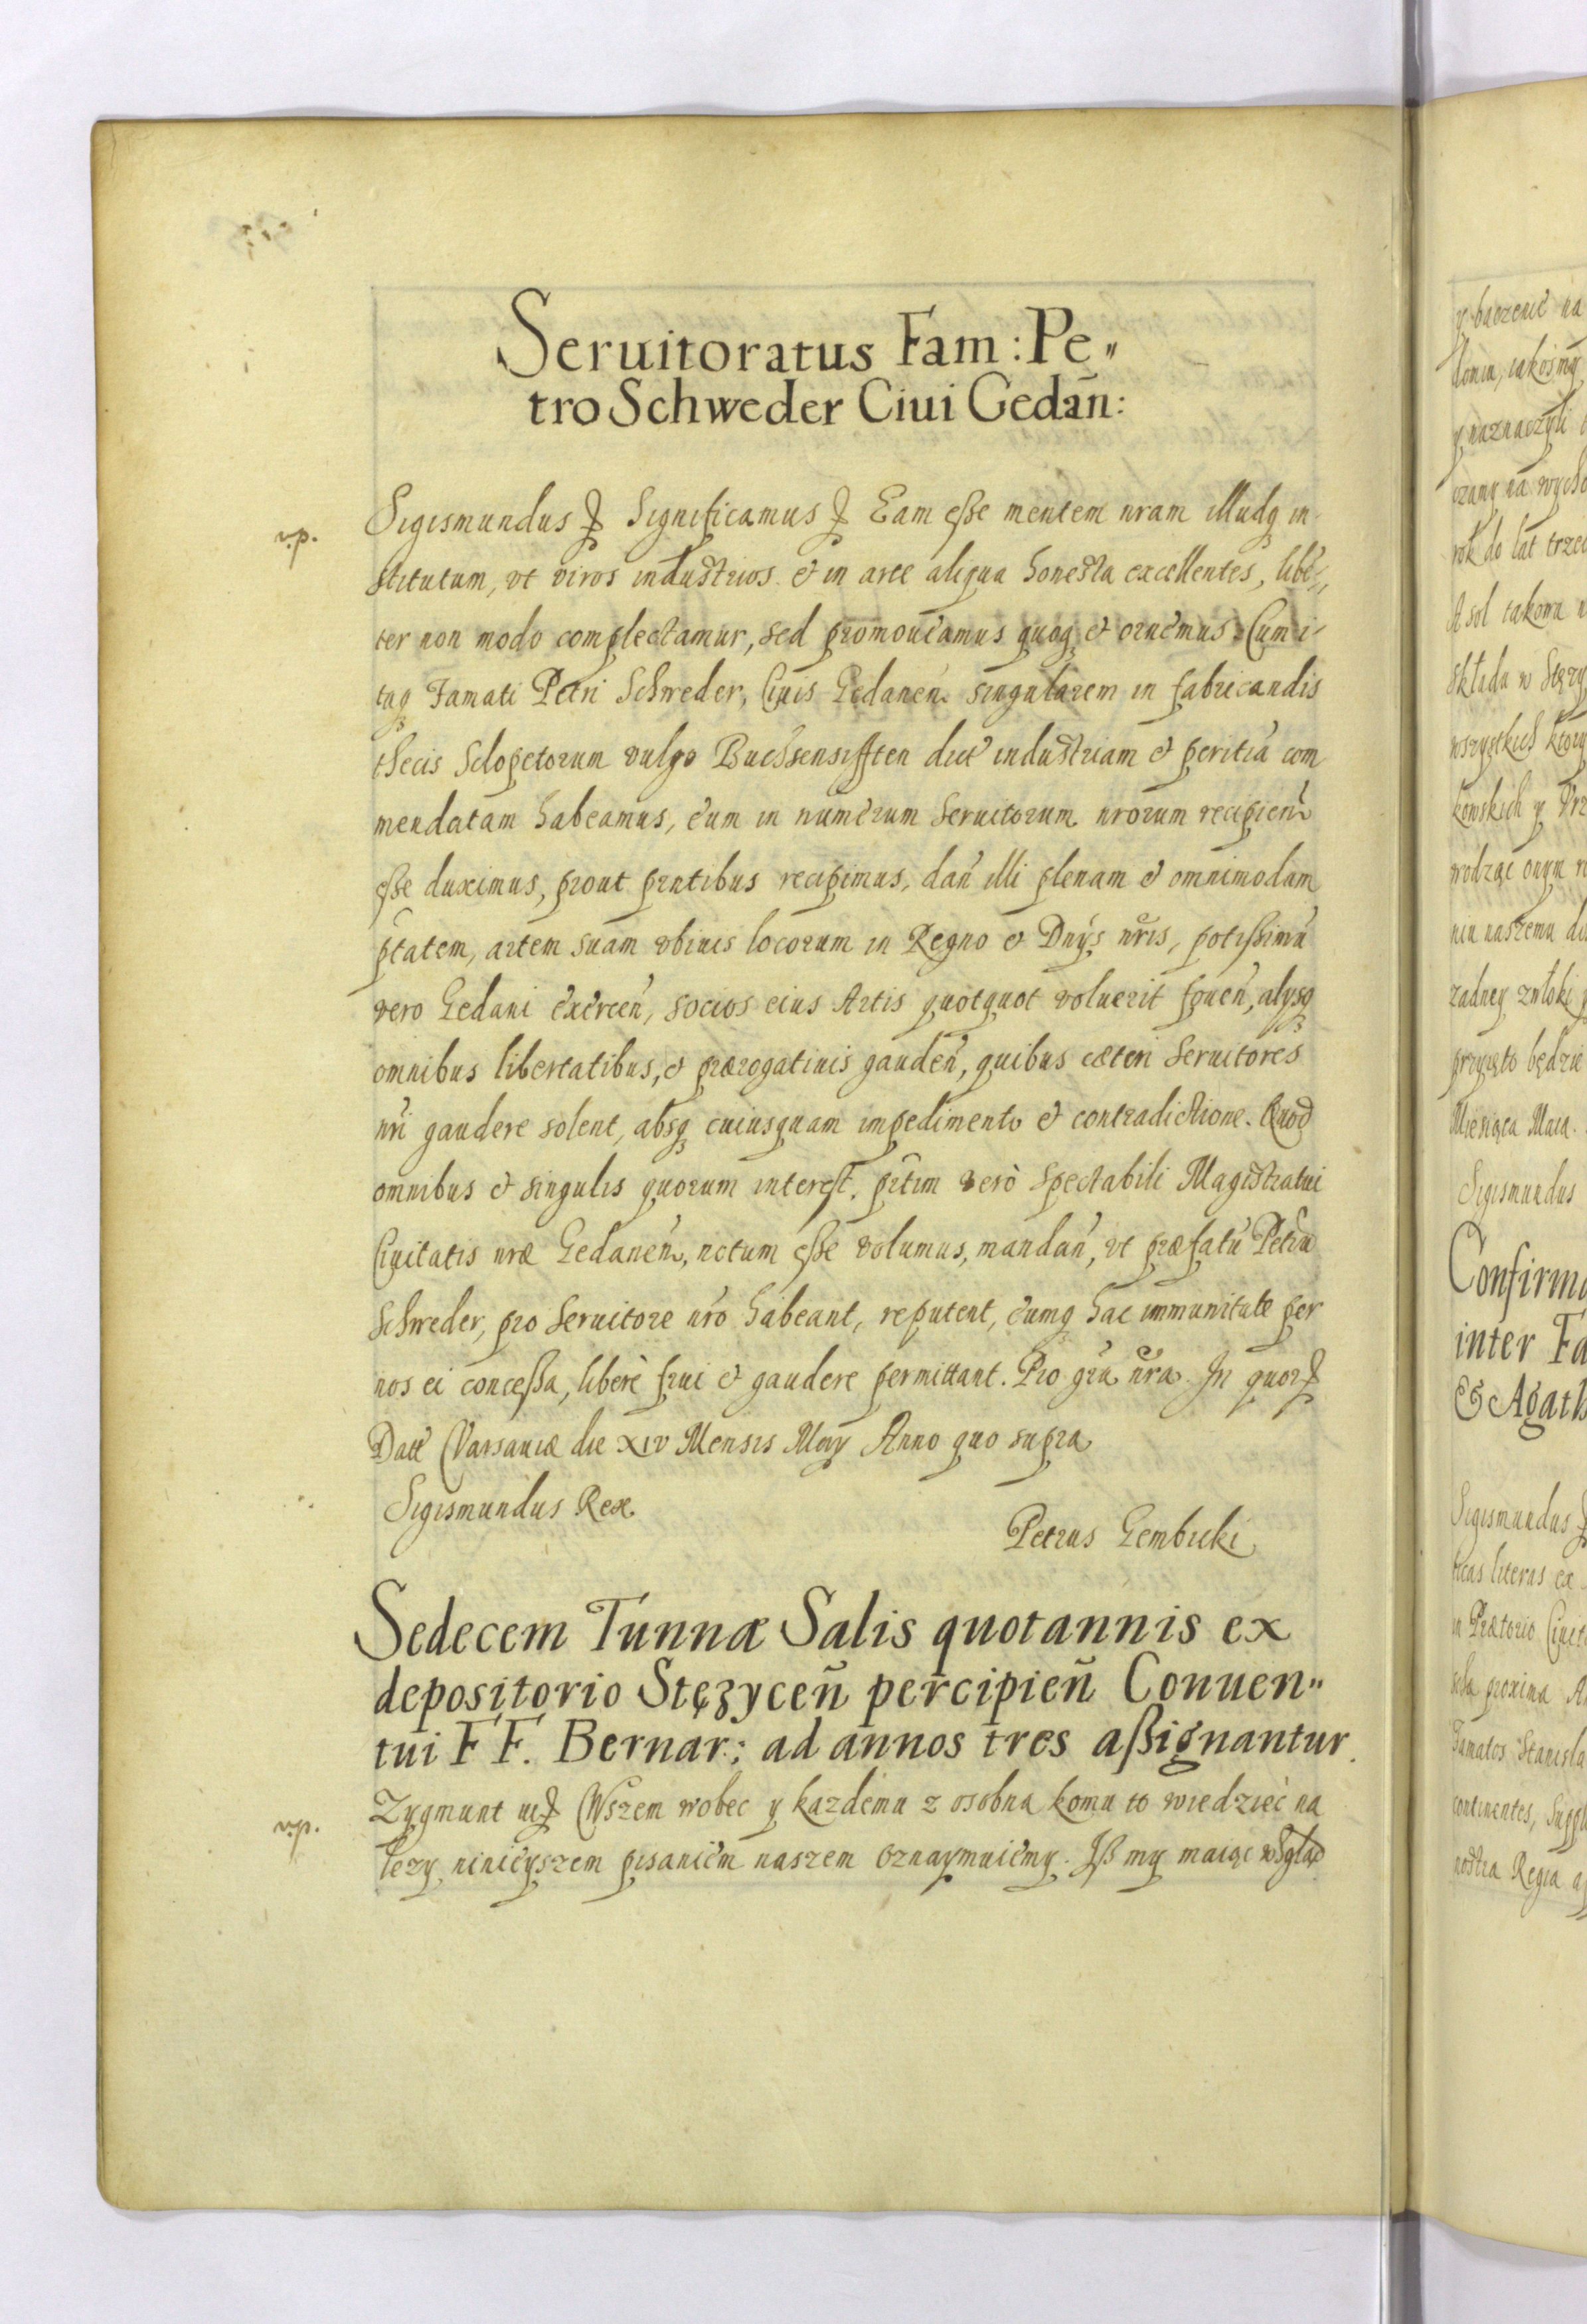 Seruitoratus Fam: Pe„
tro Schweder Ciui Gedan̄:
v.p.
Sigismundus Significamus Eam eſse mentem nram illudq in
stitutum, vt viros industrios et in arte aliqua honesta excellentes, libe„
ter non modo complectamur, sed promoueamus quoq et ornemus. Cum i-
taq Famati Petri Schweder, Ciuis Gedanen singularem in fabricandis
thecis Sclopetorum vulgo Buchsensifften dict industriam et peritia com
mendatam habeamus, eum in numerum Seruitorum nrorum recipien
eſse duximus, prout prntibus recipimus, dan illi plenam et omnimodam
ptatem, artem suam vbiuis locorum in Regno et Dnÿs nris, potiſsimu
vero Gedani exercen, socios eius Artis quotquot voluerit fouen, alysq
omnibus libertatibus, et prærogatiuis gauden, quibus cæteri Seruitores
nri gaudere solent, absq cuiusquam impedimento et contradictione. Quod
omnibus et singulis quorum interest, prtim verò Spectabili Magistratui
Ciuitatis nræ Gedanen, notum eſse volumus, mandan, vt præfatu Petru
Schweder, pro Seruitore nro habeant, reputent, eumq hac immunitate per
nos ei conceſsa, liberè frui et gaudere permittant. Pro gra nra. In quor
Datt Varsauiæ die XIV Mensis May Anno quo supra
Sigismundus Rex
Petrus Gembicki
Sedecem Tunnæ Salis quotannis ex
depositorio Stęzyceñ percipieñ Conuen„
tui F F. Bernar: ad annos tres aſsignantur.
v.p.
Zygmunt Wszem wobec y kazdemu z osobna komu to wiedzieć na
lezy, ninieyszem pisaniem naszem oznaymuiemy. Iß my maiąc wzgląd
y baczenie na
y naznaczyli
rok do lat trzec
A sol takowa
składu w Stęzy
wszystkich ktory
kowskich y Prz
wodząc onym
niu naszemu
zadney zwłoki
przyięto będzie
Miesiąca Maia.
Sigismundus
Confirma
inter Fa
& Agath
Sigismundus
ticas literas ex
in Prætorio Ciuit
proxima
Famatos Stanisla
continentes, Suppl
nostra Regia